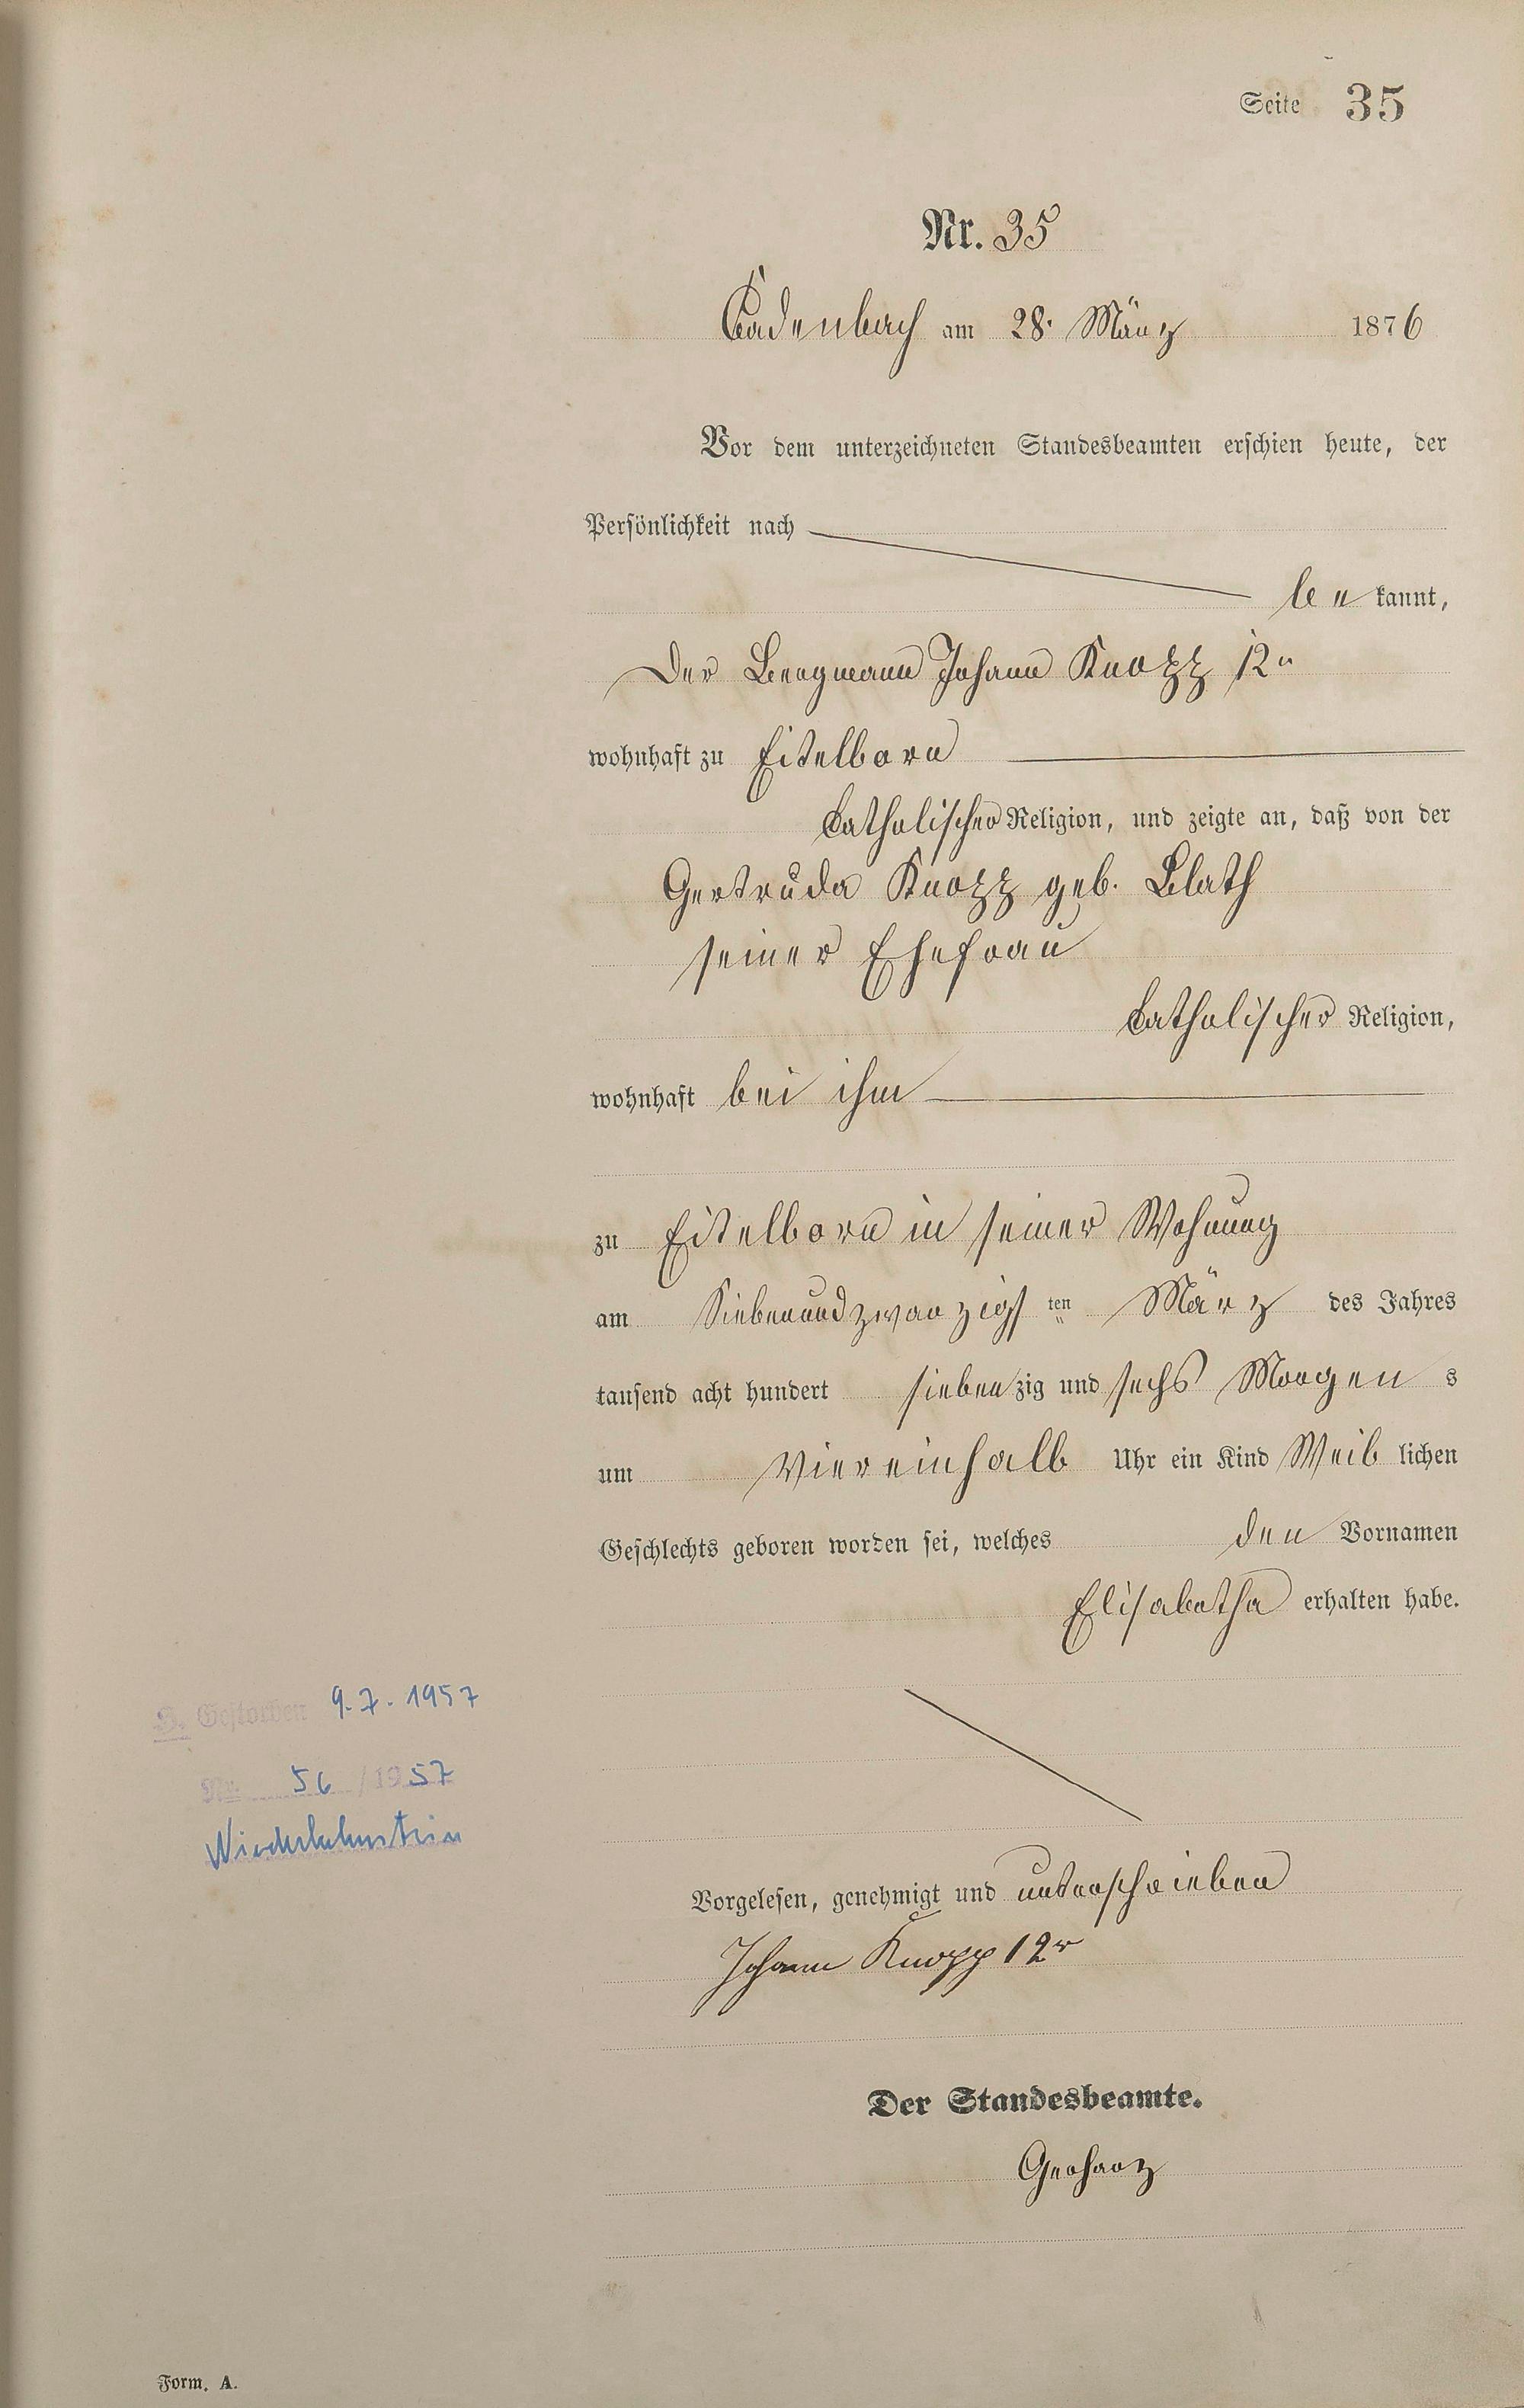 Seite 35
Nr. 35
Cadenbach am 28. März 1876
Vor dem unterzeichneten Standesbeamten erschien heute, der
Persönlichkeit nach
be kannt,
Der Bergmann Johann Knopp 12r
wohnhaft zu Eitelborn
Catholischer Religion, und zeigte an, daß von der
Gertruda Knopp geb. Blath
seiner Ehefrau
Catholischer Religion,
wohnhaft bei ihm
zu Eitelborn in seiner Wohnung
am Siebenundzwanzigsten März des Jahres
tausend acht hundert siebenzig und sechs Morgens
um Viereinhalb Uhr ein Kind Weiblichen
Geschlechts geboren worden sei, welches den Vornamen
Elisabetha erhalten habe.
S. Gestorben 9.7.1957
Nr. 56/1957
Niederlahnstein
Vorgelesen, genehmigt und unterschrieben
Johann Knopp 12r
Der Standesbeamte.
Gerharz
Form. A.